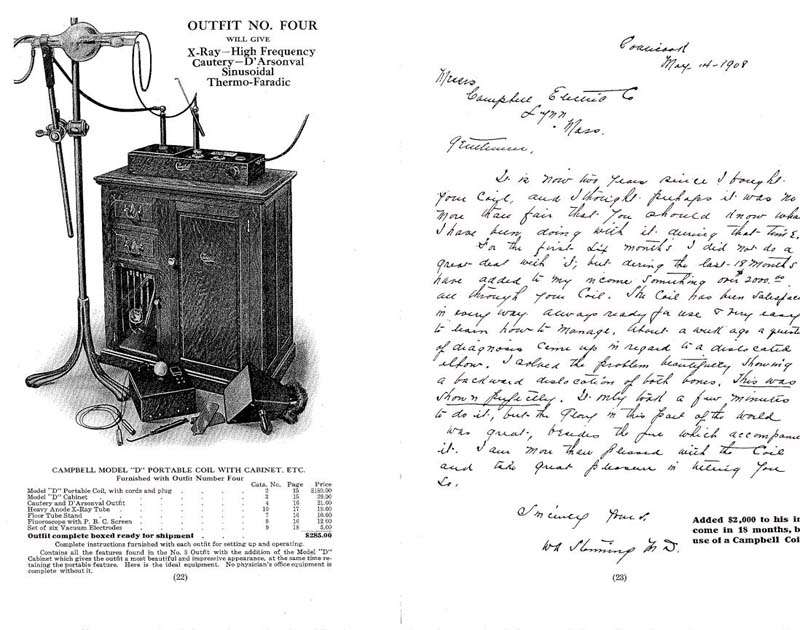 OUTFIT NO. FOUR
WILL GIVE
X-Ray—High Frequency
Cautery—D'Arsonval
Sinusoidal
Thermo-Faradic
CAMPBELL MODEL "D" PORTABLE COIL WITH CABINET, ETC.
Furnished with Outfit Number Four
Cata. No. Page Price
Model "D" Portable Coil, with cords and plug . . . . 2 15
Model "D" Cabinet . . . . 3 15
Cautery and D'Arsonval Outfit . . . . 4 16 21.00
Heavy Anode X-Ray Tube . . . . 10 17
Floor Tube Stand . . . . 7 16
Fluoroscope with P. B. C. Screen . . . . 8 16 12.00
Set of six Vacuum Electrodes . . . . 9 18 5.00
Outfit complete boxed ready for shipment . . . . $285.00
Complete instructions furnished with each outfit for setting up and operating.
Contains all the features found in the No. 3 Outfit with the addition of the Model "D"
Cabinet which gives the outfit a most beautiful and impressive appearance, at the same time re-
taining the portable feature. Here is the ideal equipment. No physician's office equipment is
complete without it.
(22)
Coaticook
May 14-1908
Messrs
Campbell Electric Co
Lynn
Mass.
Gentlemen,
It is now two years since I bought
your Coil, and I thought perhaps it was no
more than fair that you should know wha
I have been doing with it during that time.
For the first six months I did not do a
great deal with it; but during the last 18 months
have added to my income something over $2000.00
all through your Coil. The Coil has been satisfac
in every way always ready for use & very easy
to learn how to manage. About a week ago a quest
of diagnosis came up in regard to a dislocated
elbow. I solved the problem beautifully showing
a backward dislocation of both bones. This was
shown perfectly. It only took a few minutes
to do it, but the glory in this part of the world
was great, besides the fee which accompanie
it. I am more than pleased with the Coil
and take great pleasure in telling you
so.
Sincerely Yours,
M D.
Added $2,000 to his in
come in 18 months, b
use of a Campbell Coi
(23)